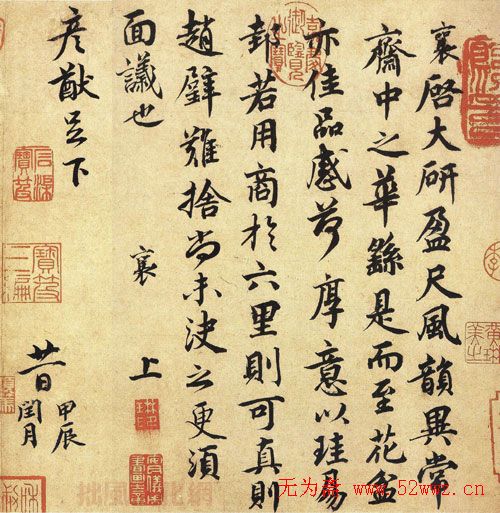 襄啓大研盈尺風韻異常
齋中之華繇是而至花盆
亦佳品感荷厚意以珪易
邽若用商於六里則可真則
趙璧難捨尚未決之更須
面議也 襄 上
彥猷足下
廿一日甲辰
閏月
无为斋 www.52wwz.cn